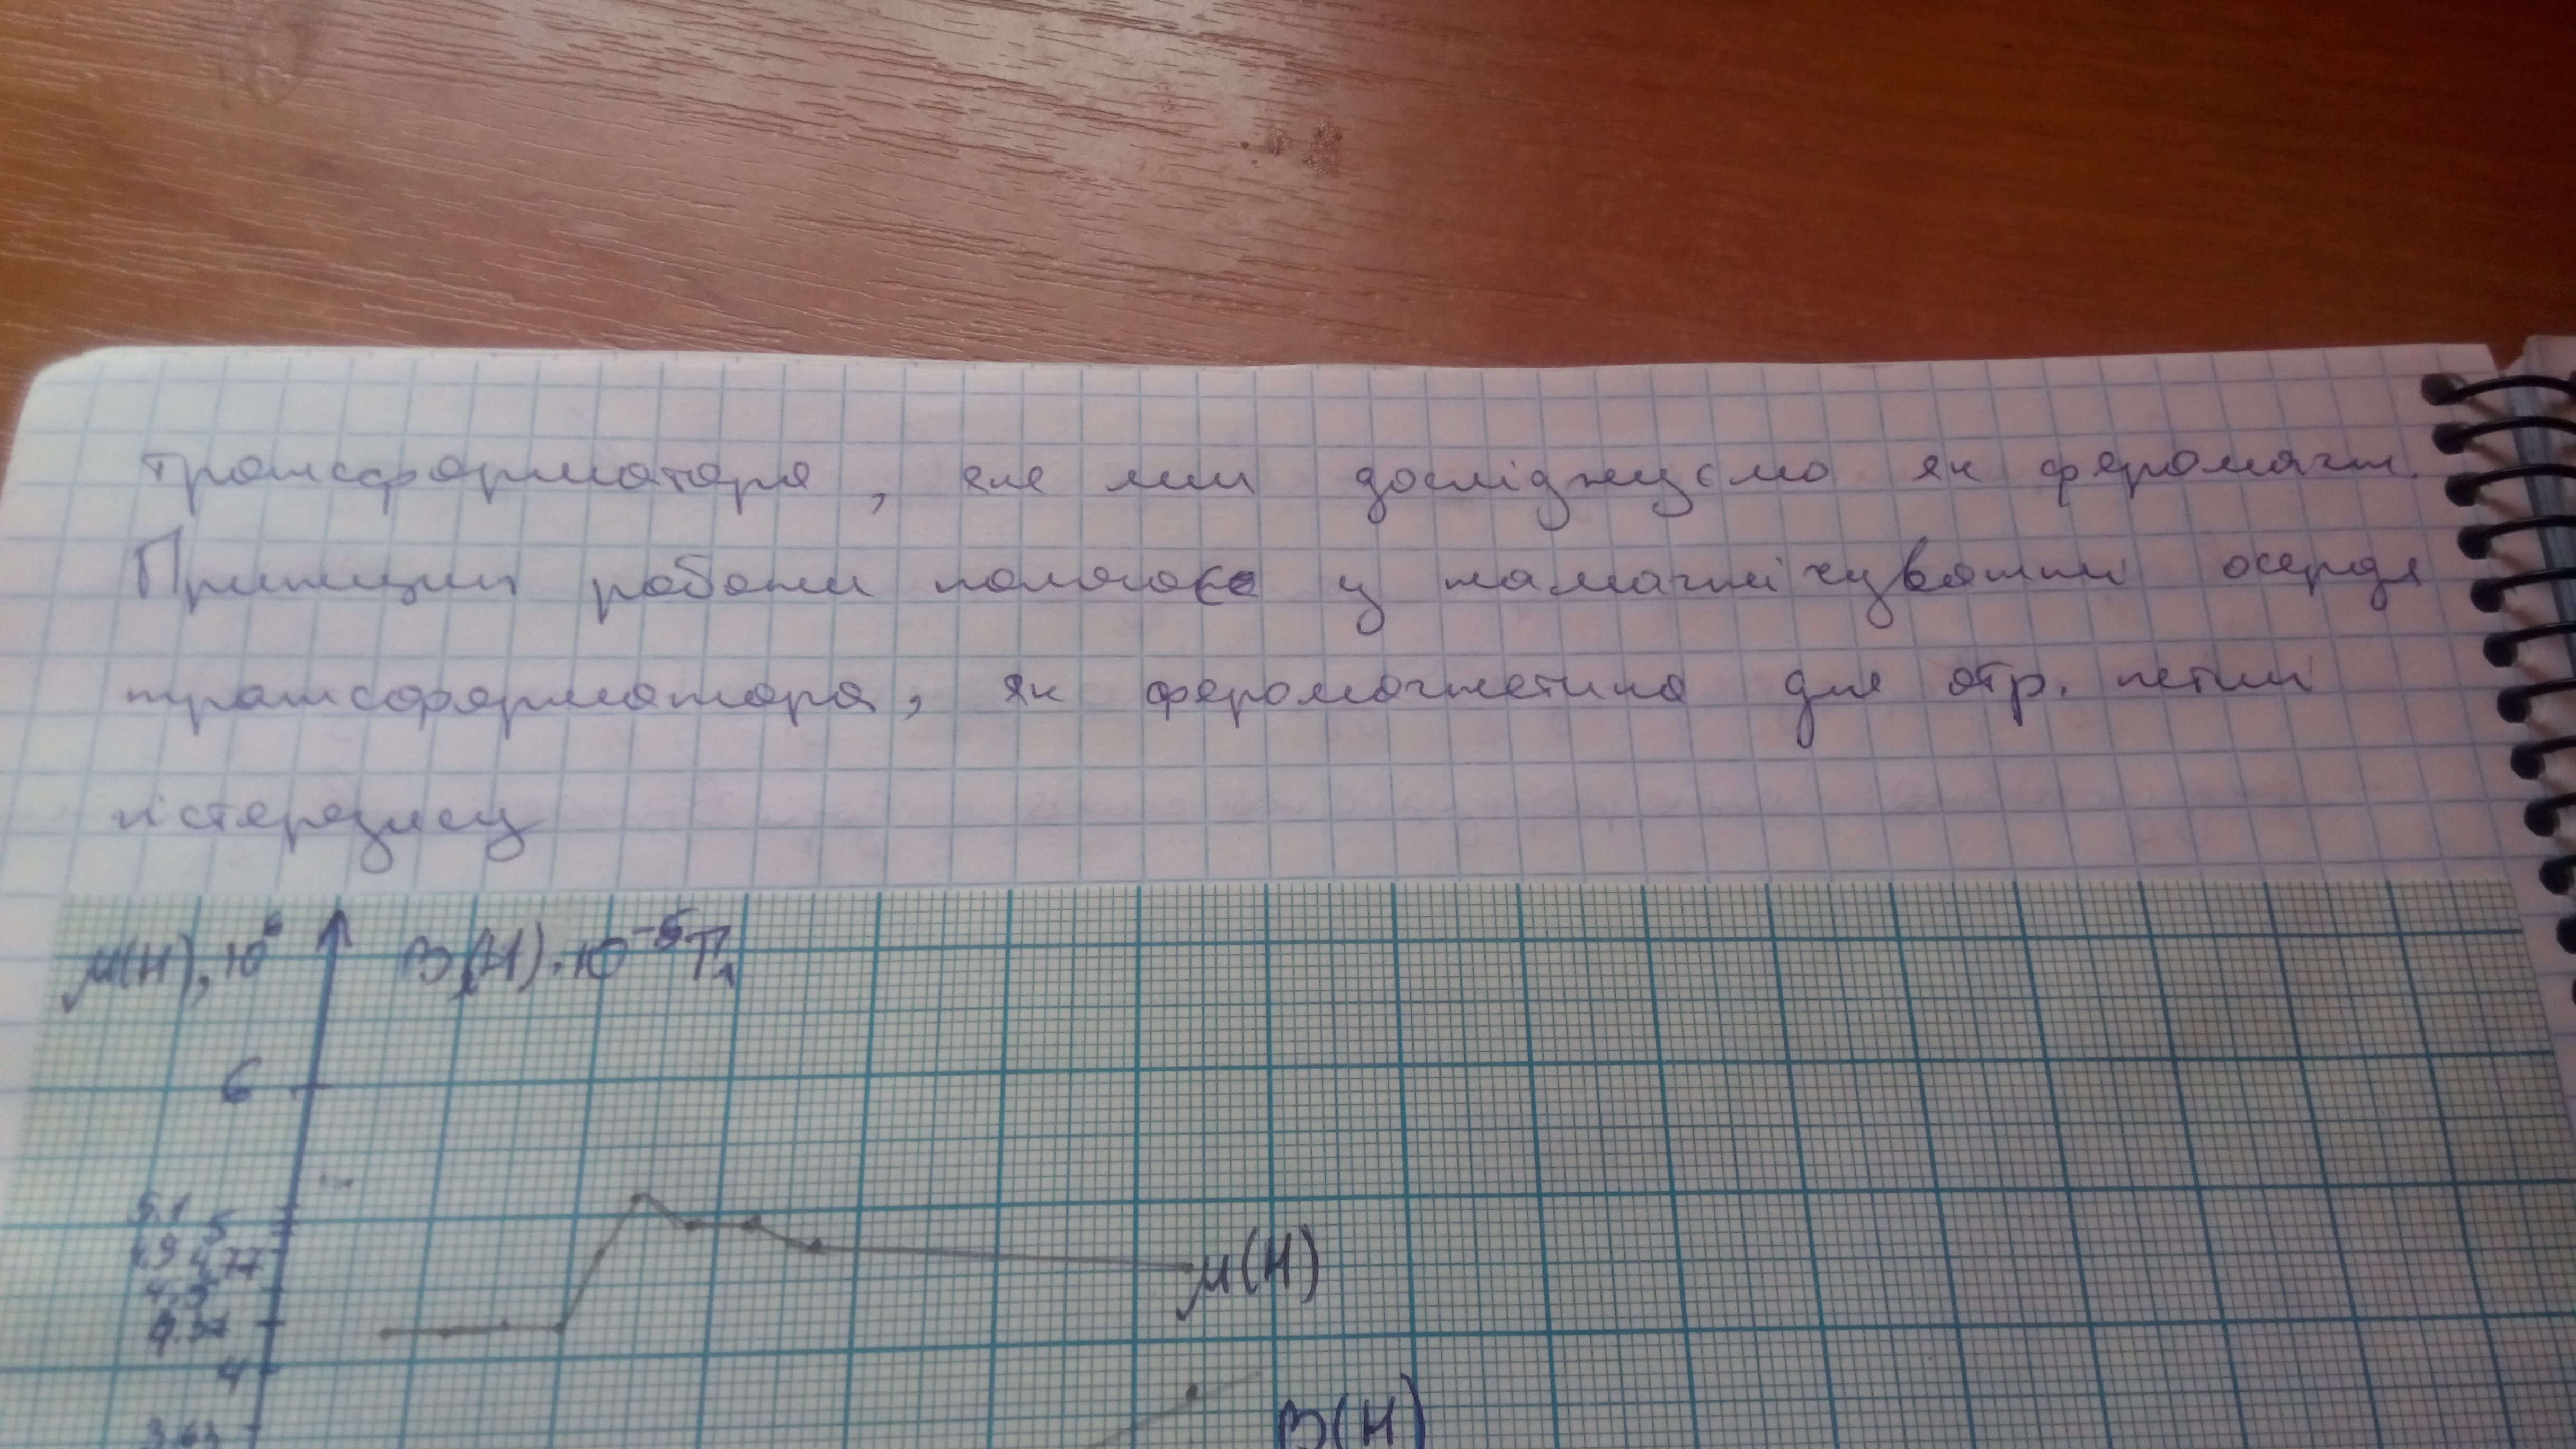 трансформатора, яке ми досліджуємо як феромагн.
Принцип роботи полягає у намагнічуванні осердя
трансформатора, як феромагнетика для отр. петлі
гістерезису
μ(H), 10⁶ B(H)·10⁻⁵Тл
6
5.1
5
4.9 4,77
4.5
4
3.63
μ(H)
B(H)